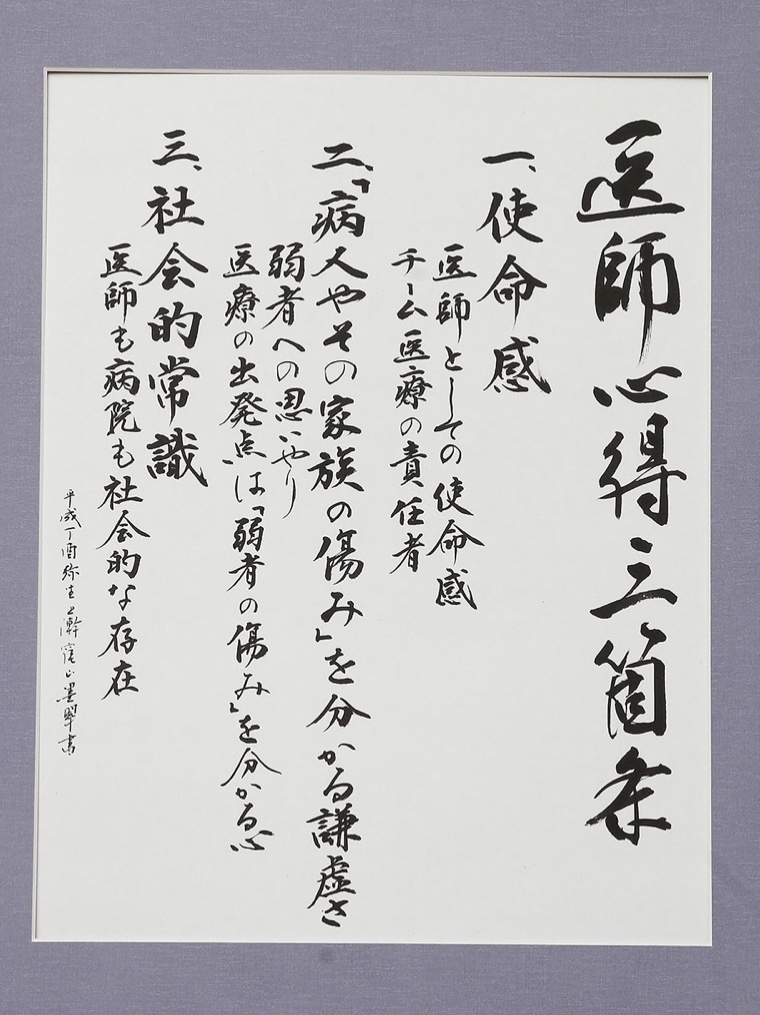 医師心得三箇条
一、使命感
医師としての使命感
チーム医療の責任者
二、「病人やその家族の傷み」を分かる謙虚さ
弱者への思いやり
医療の出発点は「弱者の傷み」を分かる心
三、社会的常識
医師も病院も社会的な存在
平成丁酉弥生上澣 山墨翠書